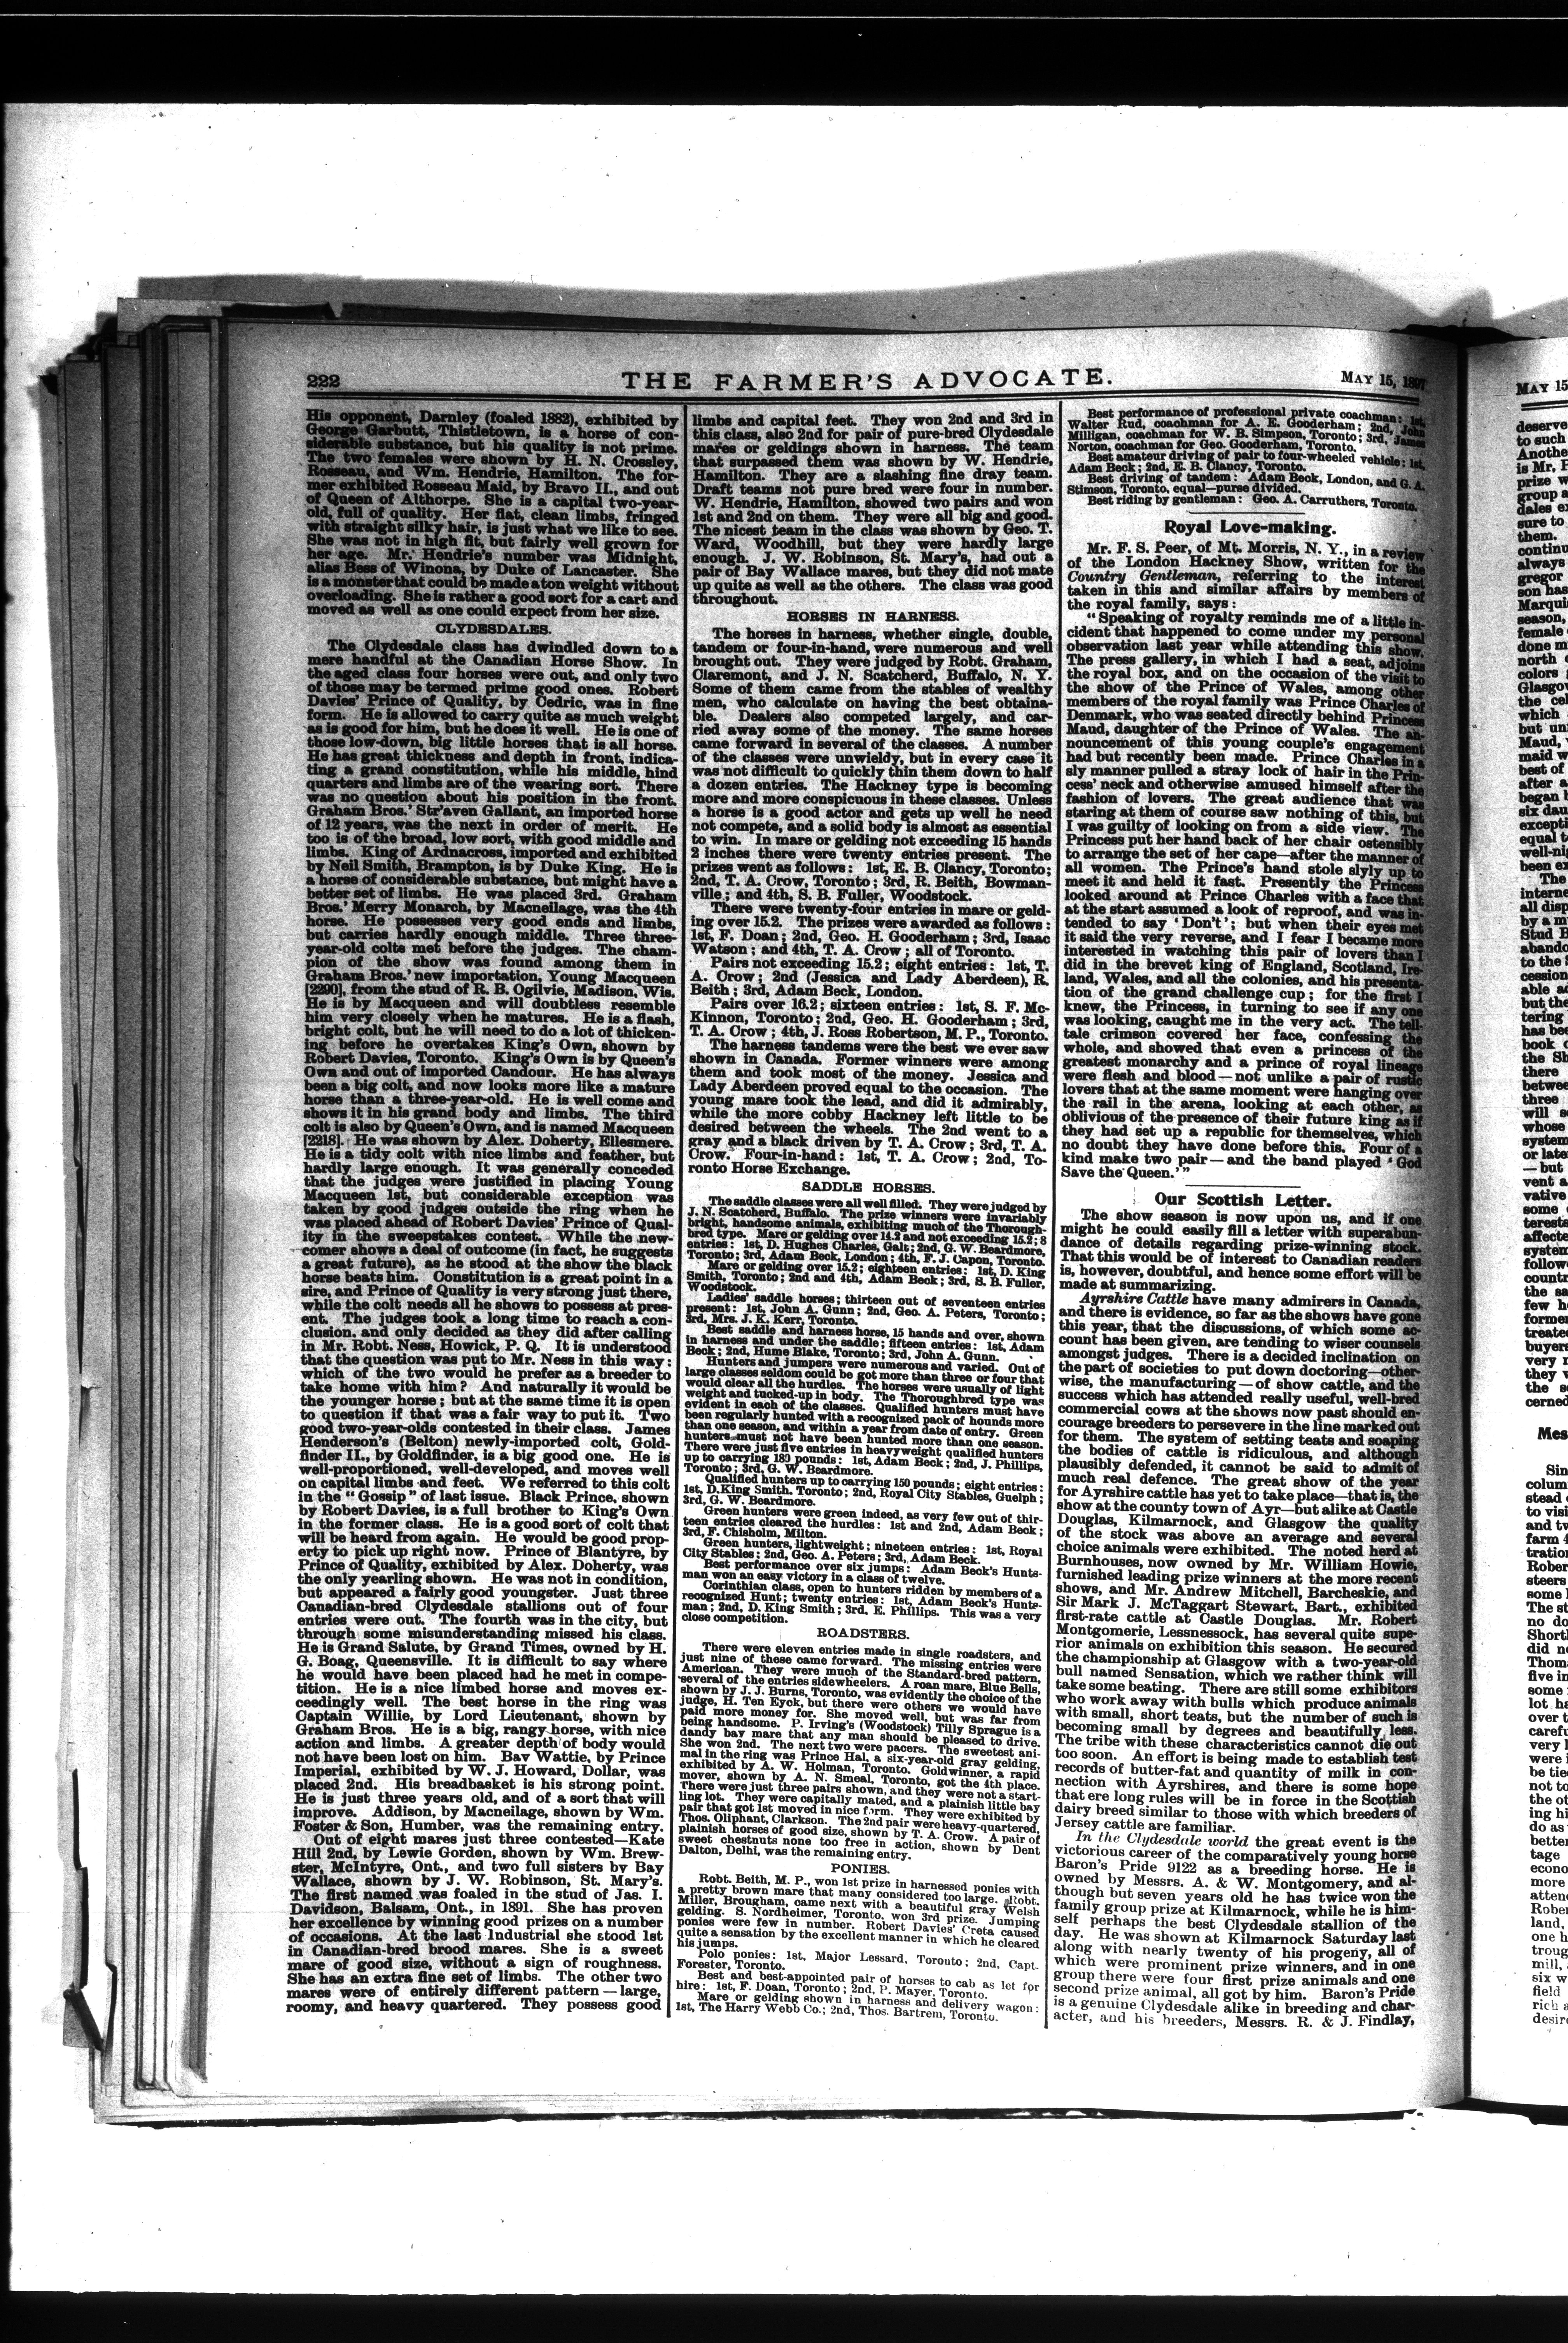 222
THE FARMER'S ADVOCATE.
MAY 15, 1897
His opponent, Darnley (foaled 1882), exhibited by
George Garbutt, Thistletown, is a horse of con-
siderable substance, but his quality is not prime.
The two females were shown by H. N. Crossley,
Rosseau, and Wm. Hendrie, Hamilton. The for-
mer exhibited Rosseau Maid, by Bravo II., and out
of Queen of Althorpe. She is a capital two-year-
old, full of quality. Her flat, clean limbs, fringed
with straight silky hair, is just what we like to see.
She was not in high fit, but fairly well grown for
her age. Mr. Hendrie's number was Midnight,
alias Bess of Winona, by Duke of Lancaster. She
is a monster that could be made a ton weight without
overloading. She is rather a good sort for a cart and
moved as well as one could expect from her size.
CLYDESDALES.
The Clydesdale class has dwindled down to a
mere handful at the Canadian Horse Show. In
the aged class four horses were out, and only two
of those may be termed prime good ones. Robert
Davies' Prince of Quality, by Cedric, was in fine
form. He is allowed to carry quite as much weight
as is good for him, but he does it well. He is one of
those low-down, big little horses that is all horse.
He has great thickness and depth in front, indica-
ting a grand constitution, while his middle, hind
quarters and limbs are of the wearing sort. There
was no question about his position in the front.
Graham Bros.' Str'aven Gallant, an imported horse
of 12 years, was the next in order of merit. He
too is of the broad, low sort, with good middle and
limbs. King of Ardnacross, imported and exhibited
by Neil Smith, Brampton, is by Duke King. He is
a horse of considerable substance, but might have a
better set of limbs. He was placed 3rd. Graham
Bros.' Merry Monarch, by Macneilage, was the 4th
horse. He possesses very good ends and limbs,
but carries hardly enough middle. Three three-
year-old colts met before the judges. The cham-
pion of the show was found among them in
Graham Bros.' new importation, Young Macqueen
[2290], from the stud of R. B. Ogilvie, Madison, Wis.
He is by Macqueen and will doubtless resemble
him very closely when he matures. He is a flash,
bright colt, but he will need to do a lot of thicken-
ing before he overtakes King's Own, shown by
Robert Davies, Toronto. King's Own is by Queen's
Own and out of imported Candour. He has always
been a big colt, and now looks more like a mature
horse than a three-year-old. He is well come and
shows it in his grand body and limbs. The third
colt is also by Queen's Own, and is named Macqueen
[2218]. He was shown by Alex. Doherty, Ellesmere.
He is a tidy colt with nice limbs and feather, but
hardly large enough. It was generally conceded
that the judges were justified in placing Young
Macqueen 1st, but considerable exception was
taken by good judges outside the ring when he
was placed ahead of Robert Davies' Prince of Qual-
ity in the sweepstakes contest. While the new-
comer shows a deal of outcome (in fact, he suggests
a great future), as he stood at the show the black
horse beats him. Constitution is a great point in a
sire, and Prince of Quality is very strong just there,
while the colt needs all he shows to possess at pres-
ent. The judges took a long time to reach a con-
clusion, and only decided as they did after calling
in Mr. Robt. Ness, Howick, P. Q. It is understood
that the question was put to Mr. Ness in this way:
which of the two would he prefer as a breeder to
take home with him? And naturally it would be
the younger horse; but at the same time it is open
to question if that was a fair way to put it. Two
good two-year-olds contested in their class. James
Henderson's (Belton) newly-imported colt, Gold-
finder II., by Goldfinder, is a big good one. He is
well-proportioned, well-developed, and moves well
on capital limbs and feet. We referred to this colt
in the "Gossip" of last issue. Black Prince, shown
by Robert Davies, is a full brother to King's Own
in the former class. He is a good sort of colt that
will be heard from again. He would be good prop-
erty to pick up right now. Prince of Blantyre, by
Prince of Quality, exhibited by Alex. Doherty, was
the only yearling shown. He was not in condition,
but appeared a fairly good youngster. Just three
Canadian-bred Clydesdale stallions out of four
entries were out. The fourth was in the city, but
through some misunderstanding missed his class.
He is Grand Salute, by Grand Times, owned by H.
G. Boag, Queensville. It is difficult to say where
he would have been placed had he met in compe-
tition. He is a nice limbed horse and moves ex-
ceedingly well. The best horse in the ring was
Captain Willie, by Lord Lieutenant, shown by
Graham Bros. He is a big, rangy horse, with nice
action and limbs. A greater depth of body would
not have been lost on him. Bay Wattie, by Prince
Imperial, exhibited by W. J. Howard, Dollar, was
placed 2nd. His breadbasket is his strong point.
He is just three years old, and of a sort that will
improve. Addison, by Macneilage, shown by Wm.
Foster & Son, Humber, was the remaining entry.
Out of eight mares just three contested—Kate
Hill 2nd, by Lewie Gordon, shown by Wm. Brew-
ster, McIntyre, Ont., and two full sisters by Bay
Wallace, shown by J. W. Robinson, St. Mary's.
The first named was foaled in the stud of Jas. I.
Davidson, Balsam, Ont., in 1891. She has proven
her excellence by winning good prizes on a number
of occasions. At the last Industrial she stood 1st
in Canadian-bred brood mares. She is a sweet
mare of good size, without a sign of roughness.
She has an extra fine set of limbs. The other two
mares were of entirely different pattern — large,
roomy, and heavy quartered. They possess good
limbs and capital feet. They won 2nd and 3rd in
this class, also 2nd for pair of pure-bred Clydesdale
mares or geldings shown in harness. The team
that surpassed them was shown by W. Hendrie,
Hamilton. They are a slashing fine dray team.
Draft teams not pure bred were four in number.
W. Hendrie, Hamilton, showed two pairs and won
1st and 2nd on them. They were all big and good.
The nicest team in the class was shown by Geo. T.
Ward, Woodhill, but they were hardly large
enough. J. W. Robinson, St. Mary's, had out a
pair of Bay Wallace mares, but they did not mate
up quite as well as the others. The class was good
throughout.
HORSES IN HARNESS.
The horses in harness, whether single, double,
tandem or four-in-hand, were numerous and well
brought out. They were judged by Robt. Graham,
Claremont, and J. N. Scatcherd, Buffalo, N. Y.
Some of them came from the stables of wealthy
men, who calculate on having the best obtaina-
ble. Dealers also competed largely, and car-
ried away some of the money. The same horses
came forward in several of the classes. A number
of the classes were unwieldy, but in every case it
was not difficult to quickly thin them down to half
a dozen entries. The Hackney type is becoming
more and more conspicuous in these classes. Unless
a horse is a good actor and gets up well he need
not compete, and a solid body is almost as essential
to win. In mare or gelding not exceeding 15 hands
2 inches there were twenty entries present. The
prizes went as follows: 1st, E. B. Clancy, Toronto;
2nd, T. A. Crow, Toronto; 3rd, R. Beith, Bowman-
ville; and 4th, S. B. Fuller, Woodstock.
There were twenty-four entries in mare or geld-
ing over 15.2. The prizes were awarded as follows:
1st, F. Doan; 2nd, Geo. H. Gooderham; 3rd, Isaac
Watson; and 4th, T. A. Crow; all of Toronto.
Pairs not exceeding 15.2; eight entries: 1st, T.
A. Crow; 2nd (Jessica and Lady Aberdeen), R.
Beith; 3rd, Adam Beck, London.
Pairs over 16.2; sixteen entries: 1st, S. F. Mc-
Kinnon, Toronto; 2nd, Geo. H. Gooderham; 3rd,
T. A. Crow; 4th, J. Ross Robertson, M. P., Toronto.
The harness tandems were the best we ever saw
shown in Canada. Former winners were among
them and took most of the money. Jessica and
Lady Aberdeen proved equal to the occasion. The
young mare took the lead, and did it admirably,
while the more cobby Hackney left little to be
desired between the wheels. The 2nd went to a
gray and a black driven by T. A. Crow; 3rd, T. A.
Crow. Four-in-hand: 1st, T. A. Crow; 2nd, To-
ronto Horse Exchange.
SADDLE HORSES.
The saddle classes were all well filled. They were judged by
J. N. Scatcherd, Buffalo. The prize winners were invariably
bright, handsome animals, exhibiting much of the Thorough-
bred type. Mare or gelding over 14.2 and not exceeding 15.2; 8
entries: 1st, D. Hughes Charles, Galt; 2nd, G. W. Beardmore,
Toronto; 3rd, Adam Beck, London; 4th, F. J. Capon, Toronto.
Mare or gelding over 15.2; eighteen entries: 1st, D. King
Smith, Toronto; 2nd and 4th, Adam Beck; 3rd, S. B. Fuller,
Woodstock.
Ladies' saddle horses; thirteen out of seventeen entries
present: 1st, John A. Gunn; 2nd, Geo. A. Peters, Toronto;
3rd, Mrs. J. K. Kerr, Toronto.
Best saddle and harness horse, 15 hands and over, shown
in harness and under the saddle; fifteen entries: 1st, Adam
Beck; 2nd, Hume Blake, Toronto; 3rd, John A. Gunn.
Hunters and jumpers were numerous and varied. Out of
large classes seldom could be got more than three or four that
would clear all the hurdles. The horses were usually of light
weight and tucked-up in body. The Thoroughbred type was
evident in each of the classes. Qualified hunters must have
been regularly hunted with a recognized pack of hounds more
than one season, and within a year from date of entry. Green
hunters must not have been hunted more than one season.
There were just five entries in heavyweight qualified hunters
up to carrying 180 pounds: 1st, Adam Beck; 2nd, J. Phillips,
Toronto; 3rd, G. W. Beardmore.
Qualified hunters up to carrying 150 pounds; eight entries:
1st, D. King Smith, Toronto; 2nd, Royal City Stables, Guelph;
3rd, G. W. Beardmore.
Green hunters were green indeed, as very few out of thir-
teen entries cleared the hurdles: 1st and 2nd, Adam Beck;
3rd, F. Chisholm, Milton.
Green hunters, lightweight; nineteen entries: 1st, Royal
City Stables; 2nd, Geo. A. Peters; 3rd, Adam Beck.
Best performance over six jumps: Adam Beck's Hunts-
man won an easy victory in a class of twelve.
Corinthian class, open to hunters ridden by members of a
recognized Hunt; twenty entries: 1st, Adam Beck's Hunts-
man; 2nd, D. King Smith; 3rd, E. Phillips. This was a very
close competition.
ROADSTERS.
There were eleven entries made in single roadsters, and
just nine of these came forward. The missing entries were
American. They were much of the Standard-bred pattern,
several of the entries sidewheelers. A roan mare, Blue Bells,
shown by J. J. Burns, Toronto, was evidently the choice of the
judge, H. Ten Eyck, but there were others we would have
paid more money for. She moved well, but was far from
being handsome. P. Irving's (Woodstock) Tilly Sprague is a
dandy bay mare that any man should be pleased to drive.
She won 2nd. The next two were pacers. The sweetest ani-
mal in the ring was Prince Hal, a six-year-old gray gelding,
exhibited by A. W. Holman, Toronto. Goldwinner, a rapid
mover, shown by A. N. Smeal, Toronto, got the 4th place.
There were just three pairs shown, and they were not a start-
ling lot. They were capitally mated, and a plainish little bay
pair that got 1st moved in nice form. They were exhibited by
Thos. Oliphant, Clarkson. The 2nd pair were heavy-quartered,
plainish horses of good size, shown by T. A. Crow. A pair of
sweet chestnuts none too free in action, shown by Dent
Dalton, Delhi, was the remaining entry.
PONIES.
Robt. Beith, M. P., won 1st prize in harnessed ponies with
a pretty brown mare that many considered too large. Robt.
Miller, Brougham, came next with a beautiful gray Welsh
gelding. S. Nordheimer, Toronto, won 3rd prize. Jumping
ponies were few in number. Robert Davies' Creta caused
quite a sensation by the excellent manner in which he cleared
his jumps.
Polo ponies: 1st, Major Lessard, Toronto; 2nd, Capt.
Forester, Toronto.
Best and best-appointed pair of horses to cab as let for
hire: 1st, F. Doan, Toronto; 2nd, P. Mayer, Toronto.
Mare or gelding shown in harness and delivery wagon:
1st, The Harry Webb Co.; 2nd, Thos. Bartrem, Toronto.
Best performance of professional private coachman: 1st,
Walter Rud, coachman for A. E. Gooderham; 2nd, John
Milligan, coachman for W. B. Simpson, Toronto; 3rd, James
Norton, coachman for Geo. Gooderham, Toronto.
Best amateur driving of pair to four-wheeled vehicle: 1st,
Adam Beck; 2nd, E. B. Clancy, Toronto.
Best driving of tandem: Adam Beck, London, and G. A.
Stimson, Toronto, equal—purse divided.
Best riding by gentleman: Geo. A. Carruthers, Toronto.
Royal Love-making.
Mr. F. S. Peer, of Mt. Morris, N. Y., in a review
of the London Hackney Show, written for the
Country Gentleman, referring to the interest
taken in this and similar affairs by members of
the royal family, says:
"Speaking of royalty reminds me of a little in-
cident that happened to come under my personal
observation last year while attending this show.
The press gallery, in which I had a seat, adjoins
the royal box, and on the occasion of the visit to
the show of the Prince of Wales, among other
members of the royal family was Prince Charles of
Denmark, who was seated directly behind Princess
Maud, daughter of the Prince of Wales. The an-
nouncement of this young couple's engagement
had but recently been made. Prince Charles in a
sly manner pulled a stray lock of hair in the Prin-
cess' neck and otherwise amused himself after the
fashion of lovers. The great audience that was
staring at them of course saw nothing of this, but
I was guilty of looking on from a side view. The
Princess put her hand back of her chair ostensibly
to arrange the set of her cape—after the manner of
all women. The Prince's hand stole slyly up to
meet it and held it fast. Presently the Princess
looked around at Prince Charles with a face that
at the start assumed a look of reproof, and was in-
tended to say 'Don't'; but when their eyes met
it said the very reverse, and I fear I became more
interested in watching this pair of lovers than I
did in the brevet king of England, Scotland, Ire-
land, Wales, and all the colonies, and his presenta-
tion of the grand challenge cup; for the first I
knew, the Princess, in turning to see if any one
was looking, caught me in the very act. The tell-
tale crimson covered her face, confessing the
whole, and showed that even a princess of the
greatest monarchy and a prince of royal lineage
were flesh and blood — not unlike a pair of rustic
lovers that at the same moment were hanging over
the rail in the arena, looking at each other, as
oblivious of the presence of their future king as if
they had set up a republic for themselves, which
no doubt they have done before this. Four of a
kind make two pair — and the band played 'God
Save the Queen.'"
Our Scottish Letter.
The show season is now upon us, and if one
might he could easily fill a letter with superabun-
dance of details regarding prize-winning stock.
That this would be of interest to Canadian readers
is, however, doubtful, and hence some effort will be
made at summarizing.
Ayrshire Cattle have many admirers in Canada,
and there is evidence, so far as the shows have gone
this year, that the discussions, of which some ac-
count has been given, are tending to wiser counsels
amongst judges. There is a decided inclination on
the part of societies to put down doctoring—other-
wise, the manufacturing — of show cattle, and the
success which has attended really useful, well-bred
commercial cows at the shows now past should en-
courage breeders to persevere in the line marked out
for them. The system of setting teats and soaping
the bodies of cattle is ridiculous, and although
plausibly defended, it cannot be said to admit of
much real defence. The great show of the year
for Ayrshire cattle has yet to take place—that is, the
show at the county town of Ayr—but alike at Castle
Douglas, Kilmarnock, and Glasgow the quality
of the stock was above an average and several
choice animals were exhibited. The noted herd at
Burnhouses, now owned by Mr. William Howie,
furnished leading prize winners at the more recent
shows, and Mr. Andrew Mitchell, Barcheskie, and
Sir Mark J. McTaggart Stewart, Bart., exhibited
first-rate cattle at Castle Douglas. Mr. Robert
Montgomerie, Lessnessock, has several quite supe-
rior animals on exhibition this season. He secured
the championship at Glasgow with a two-year-old
bull named Sensation, which we rather think will
take some beating. There are still some exhibitors
who work away with bulls which produce animals
with small, short teats, but the number of such is
becoming small by degrees and beautifully less.
The tribe with these characteristics cannot die out
too soon. An effort is being made to establish test
records of butter-fat and quantity of milk in con-
nection with Ayrshires, and there is some hope
that ere long rules will be in force in the Scottish
dairy breed similar to those with which breeders of
Jersey cattle are familiar.
In the Clydesdale world the great event is the
victorious career of the comparatively young horse
Baron's Pride 9122 as a breeding horse. He is
owned by Messrs. A. & W. Montgomery, and al-
though but seven years old he has twice won the
family group prize at Kilmarnock, while he is him-
self perhaps the best Clydesdale stallion of the
day. He was shown at Kilmarnock Saturday last
along with nearly twenty of his progeny, all of
which were prominent prize winners, and in one
group there were four first prize animals and one
second prize animal, all got by him. Baron's Pride
is a genuine Clydesdale alike in breeding and char-
acter, and his breeders, Messrs. R. & J. Findlay,
MAY 15